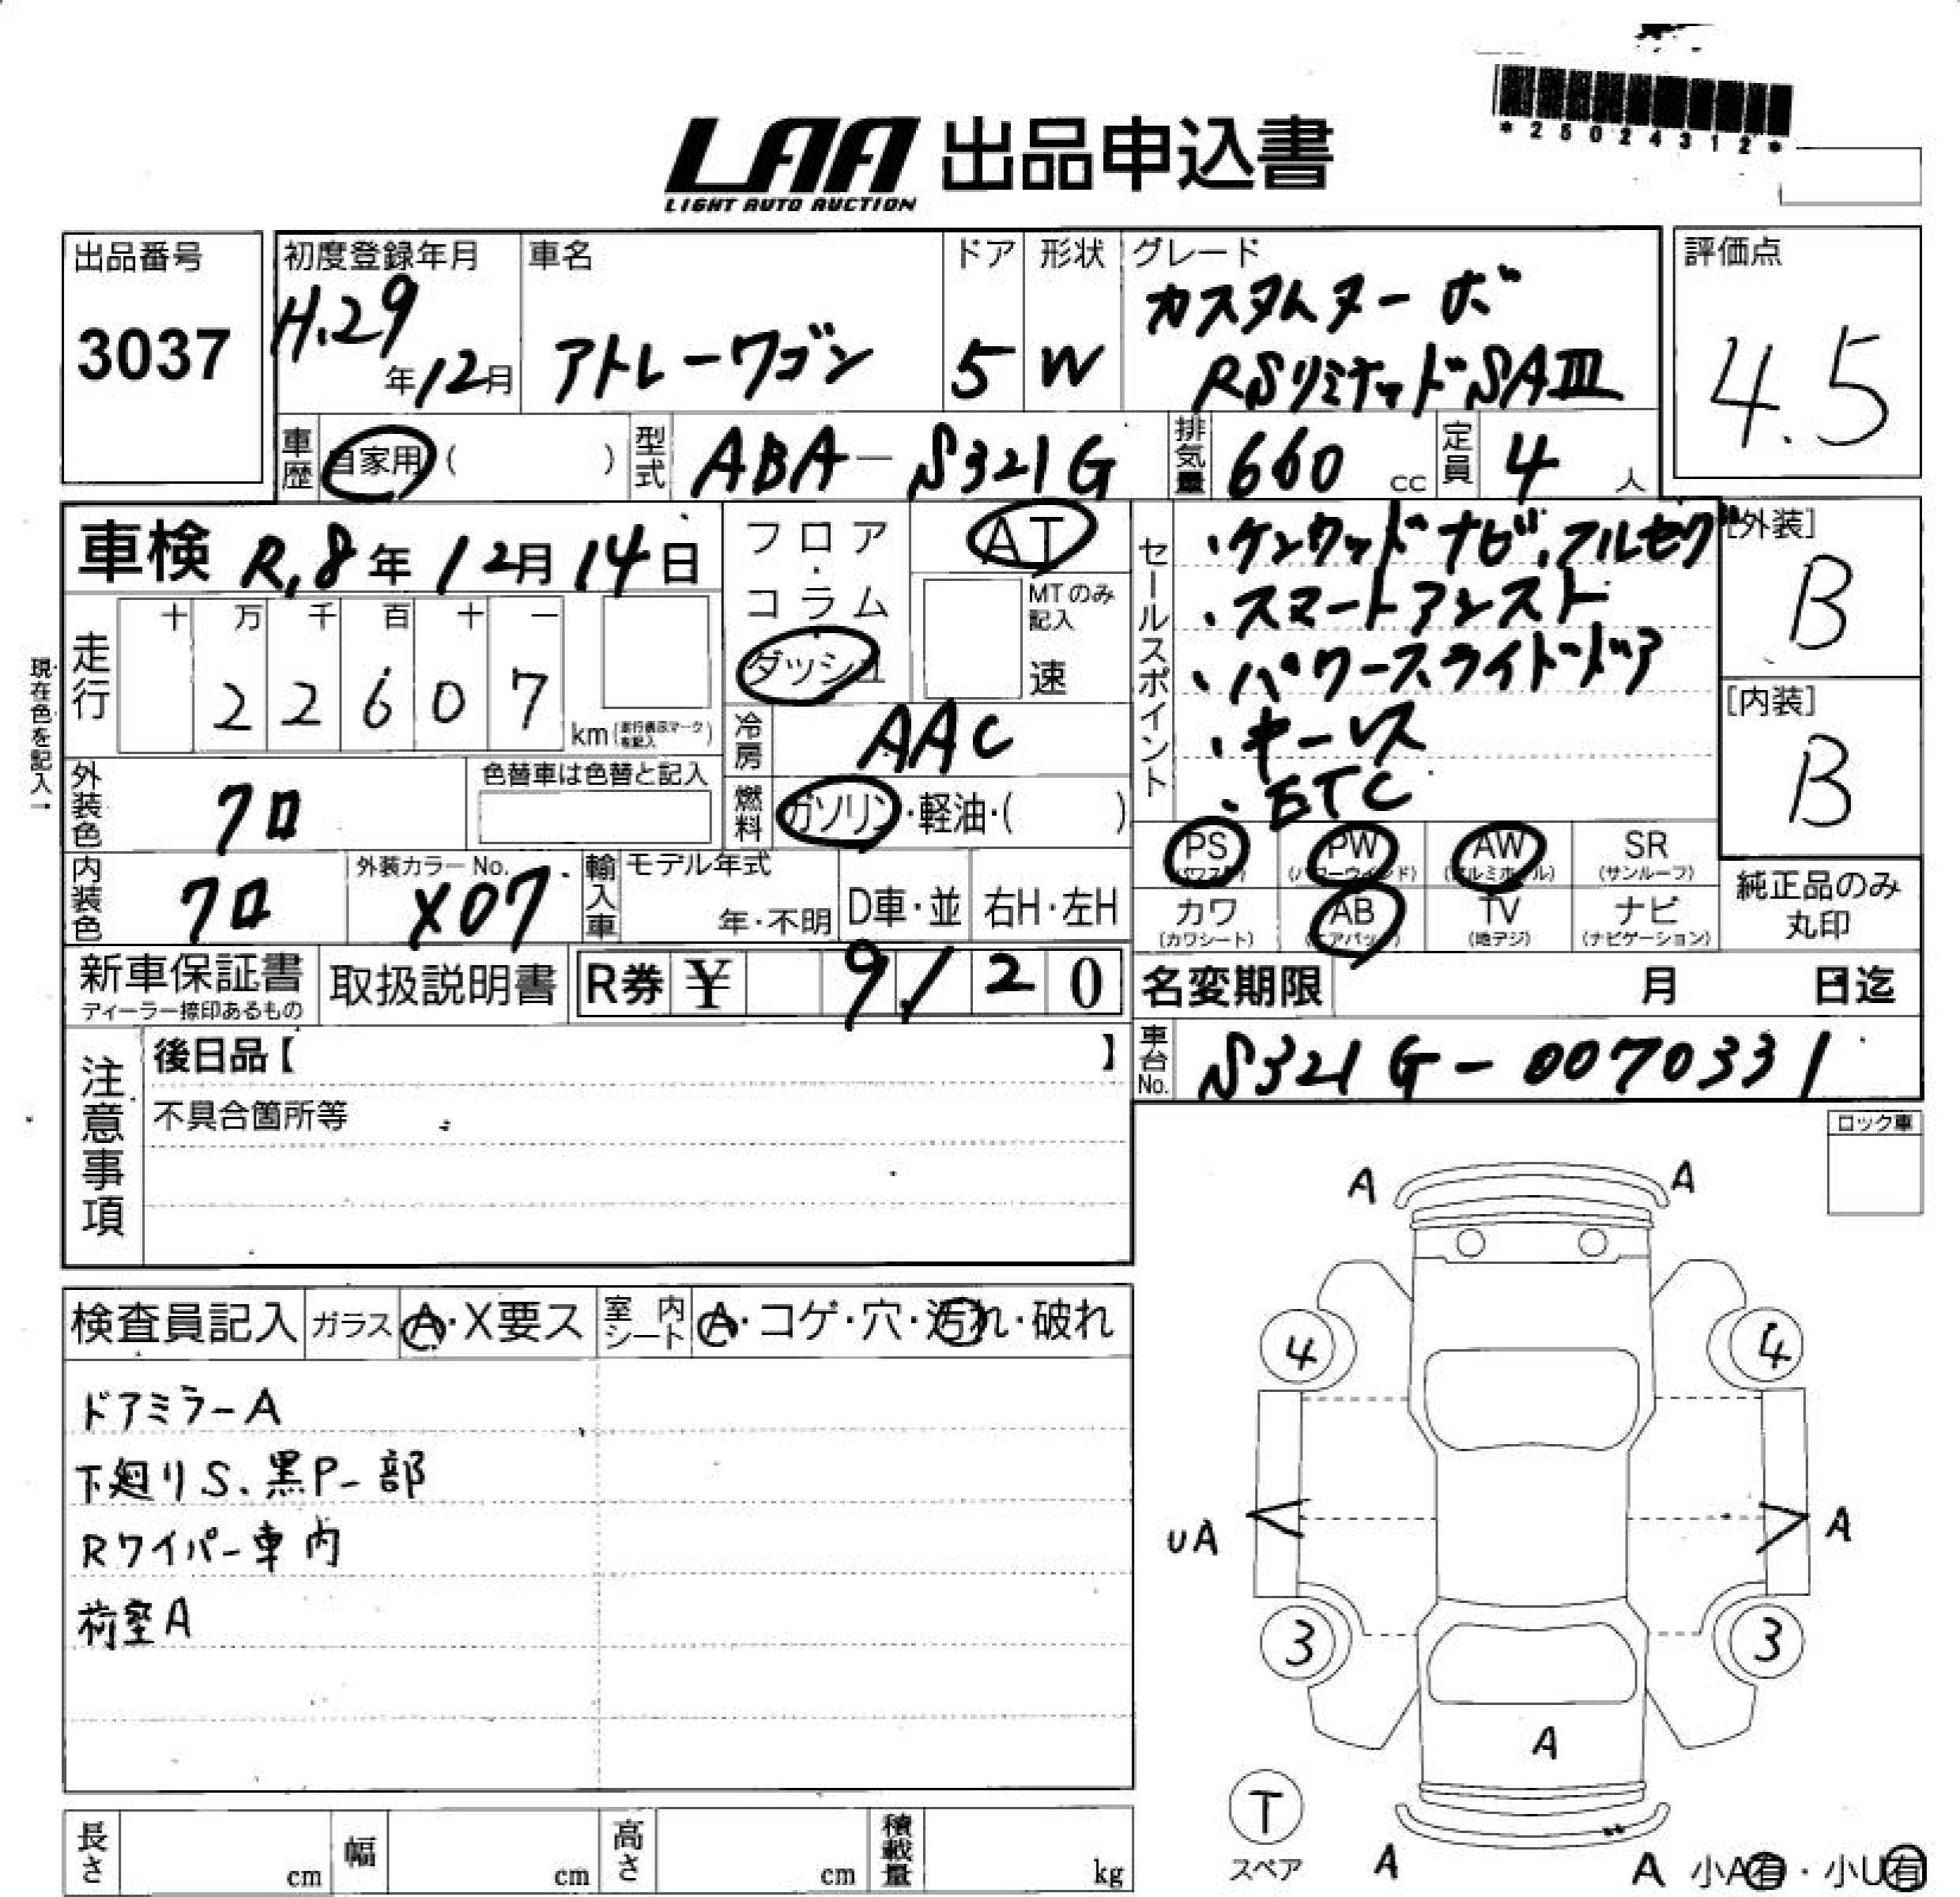 *25024312*
LAA 出品申込書
LIGHT AUTO AUCTION
出品番号
3037
初度登録年月
H.29年12月
車名
アトレーワゴン
ドア
5
形状
W
グレード
カスタムターボ
RSリミテッドSAIII
評価点
4.5
車歴 自家用( )
型式 ABA-S321G
排気量 660 cc
定員 4 人
車検 R.8年12月14日
フロア・コラム
ダッシュ
AT
MTのみ記入
速
セールスポイント
・ケンウッドナビ、フルセグ
・スマートアシスト
・パワースライドドア
・キーレス
・ETC
[外装]
B
[内装]
B
現在色を記入→
走行
十 万 千 百 十 一
2 2 6 0 7
km(走行表示マークを記入)
冷房 AAC
外装色 クロ
色替車は色替と記入
燃料 ガソリン・軽油・( )
PS (パワステ)
PW (パワーウインド)
AW (アルミホイル)
SR (サンルーフ)
カワ (カワシート)
AB (エアバック)
TV (地デジ)
ナビ (ナビゲーション)
純正品のみ丸印
内装色 クロ
外装カラーNo. X07
輸入車
モデル年式
年・不明
D車・並
右H・左H
新車保証書
ディーラー捺印あるもの
取扱説明書
R券 ¥ 9,120
名変期限 月 日迄
車台No. S321G-0070331
注意事項
後日品【 】
不具合箇所等
ロック車
検査員記入
ガラス A・X要ス
室内シート A・コゲ・穴・汚れ・破れ
ドアミラーA
下廻りS、黒P一部
Rワイパー車内
荷室A
A A
4 4
UA A
3 3
A
T
スペア
A A 小A有・小U有
長さ cm
幅 cm
高さ cm
積載量 kg